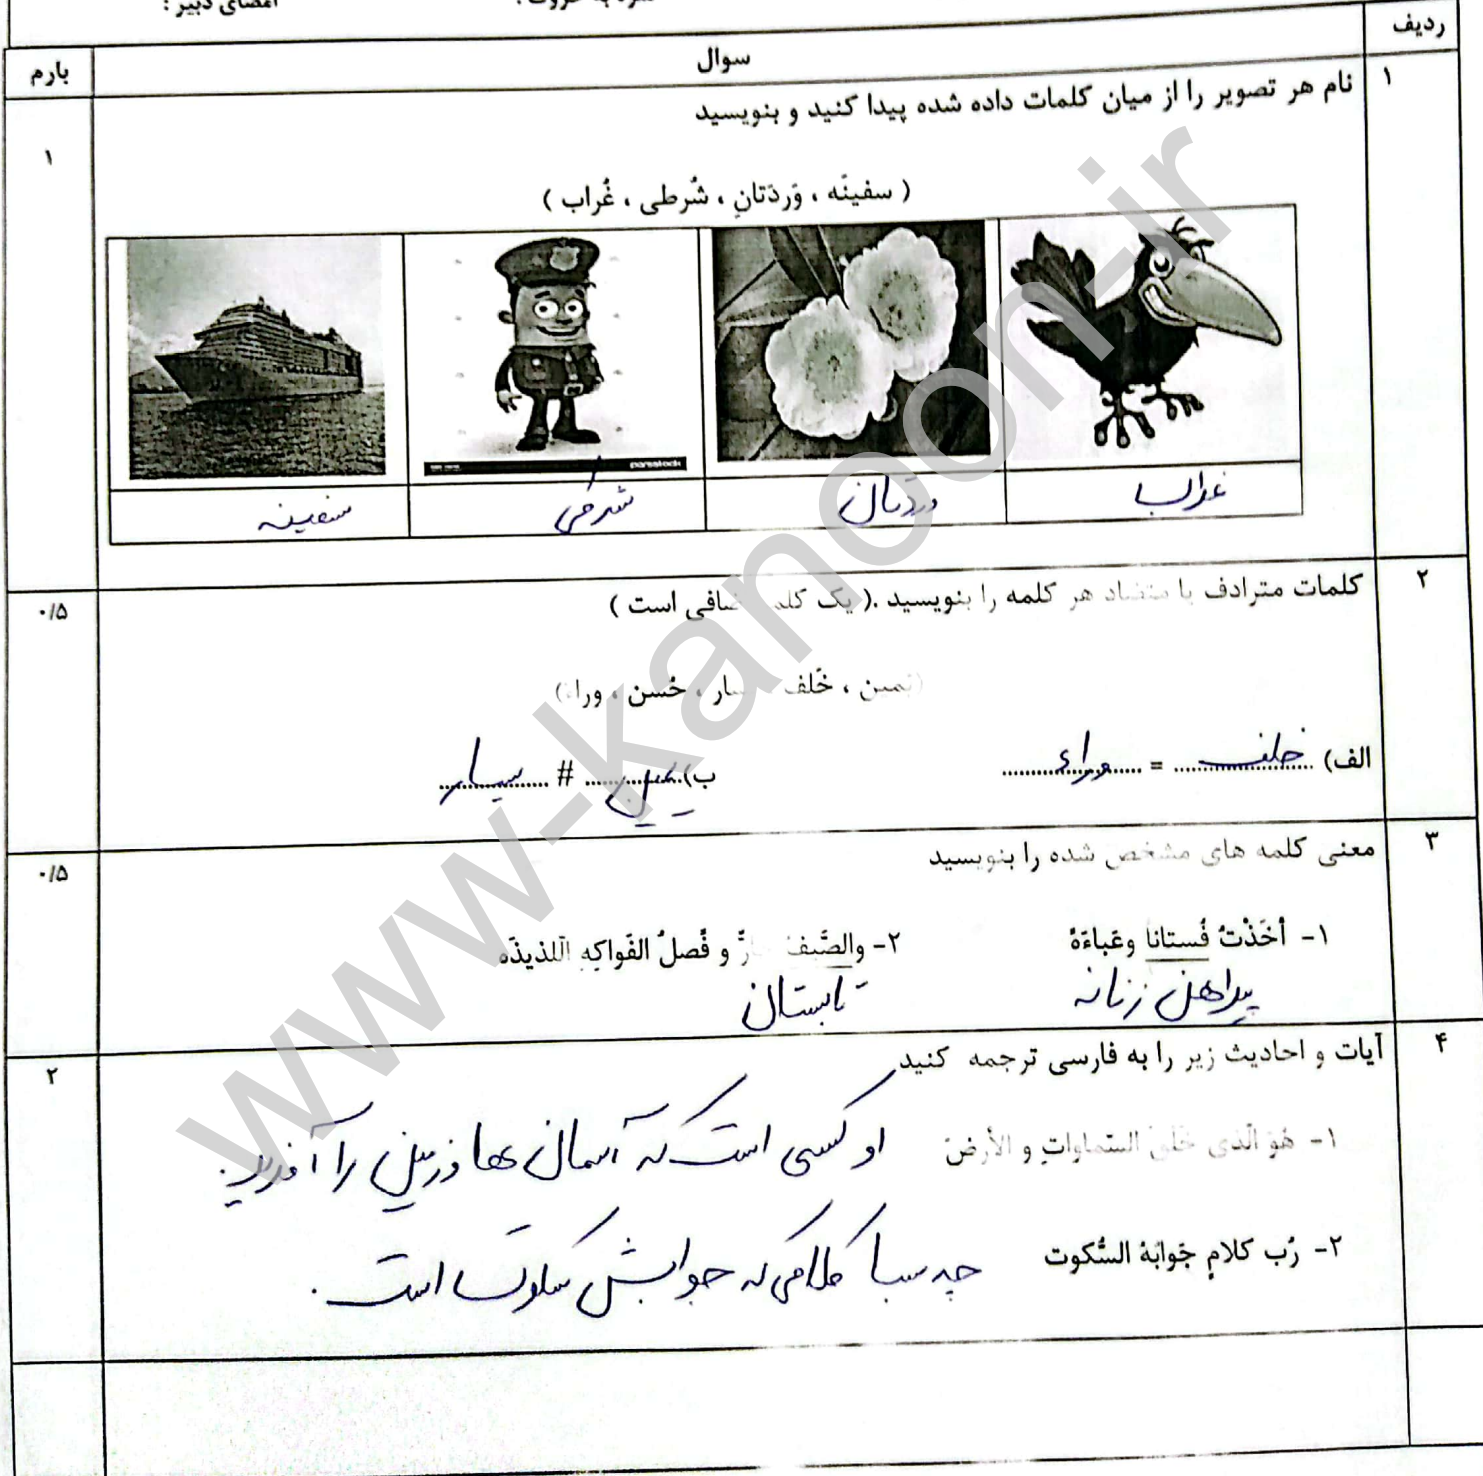 امضای دبیر :
ردیف
سوال
بارم
۱
نام هر تصویر را از میان کلمات داده شده پیدا کنید و بنویسید
۱
( سفینَه ، وَردَتانِ ، شُرطی ، غُراب )
غراب
وردتان
شرطی
سفینه
۲
کلمات مترادف یا متضاد هر کلمه را بنویسید .( یک کلمه اضافی است )
۰/۵
(یَمین ، خَلف ، یسار ، حُسن ، وراء)
الف) خلف = وراء
ب) یمین # یسار
۳
معنی کلمه های مشخص شده را بنویسید
۰/۵
۱- أخَذْتُ فُستانا وعَباءَهُ
۲- والصَّیفُ حارٌّ و فَصلُ الفَواکِهِ الّلذیذَه
پیراهن زنانه
تابستان
۴
آیات و احادیث زیر را به فارسی ترجمه کنید
۲
۱- هُوَ الّذی خَلَقَ السّماواتِ و الأرضَ او کسی است که آسمان ها و زمین را آفرید.
۲- رُب کلامٍ جَوابُهُ السُّکوت چه بسا کلامی که جوابش سکوت است.
www-kanoon-ir